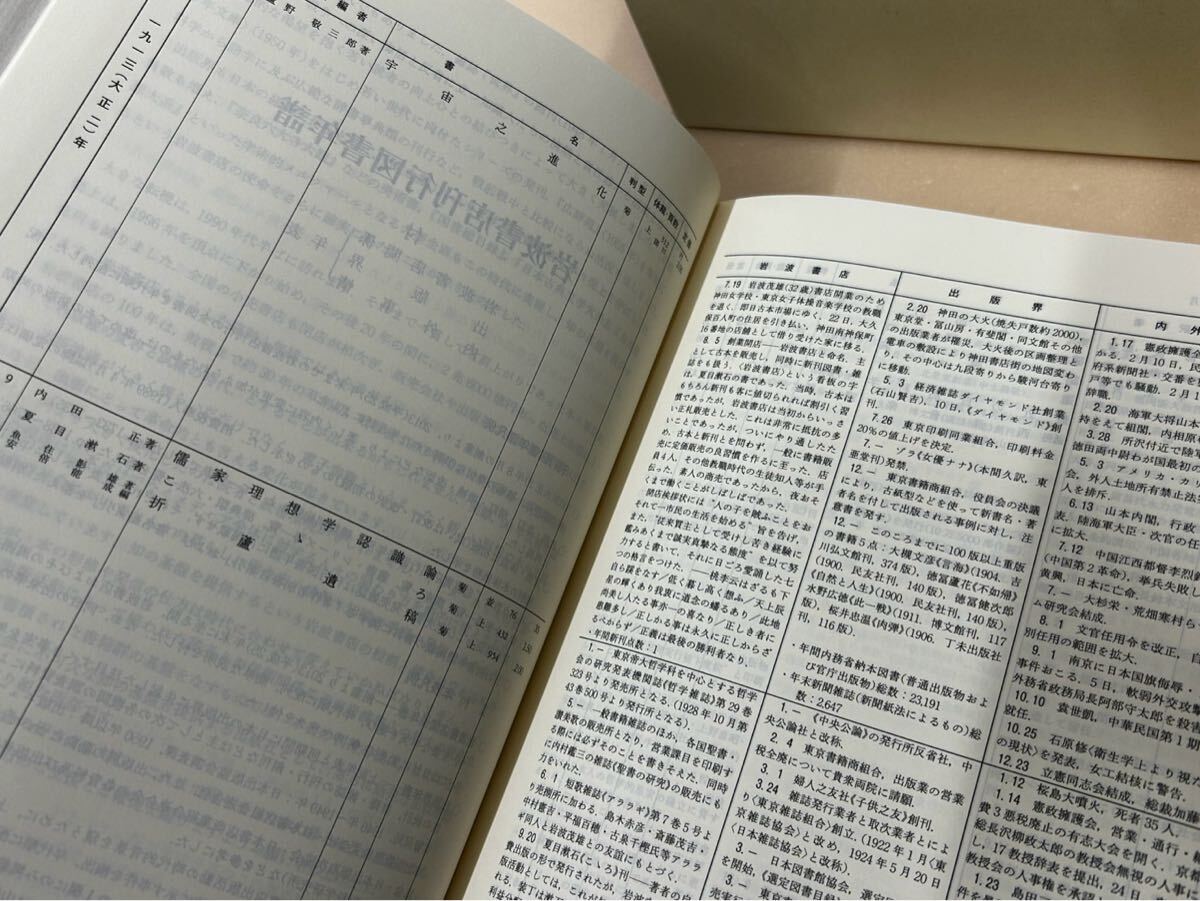 一九一三(大正二)年
編者
書名
判型
蘆野敬三郎著
宇宙之進化
菊
上
312
9
内田正著
儒家理想学認識論
菊
並
76
夏目漱石著
こゝろ
菊
上
432
150
魚住影雄著
安倍能成編
折蘆遺稿
菊
上
954
岩波書店
7.19 岩波茂雄(32歳)書店開業のため
神田女学校・東京女子体操音楽学校の教職
を退く,即日古本市場にゆく.22日,大久
保百人町の住居を引き払い,神田南神保町
16番地の店舗として借り受けた家に移る.
8.5 創業開店――岩波書店と命名,主
として古本を販売し,同時に新刊図書・雑
誌をも扱う.〈岩波書店〉という看板の字
は,夏目漱石の書であった.当時,古本は
もちろん新刊も客に値切られれば割引く習
慣であったが,岩波書店は当初からいっさ
い正札販売とした.これは非常に抵抗の多
いことであったが,ついにやり通したた
め,古本と新刊とを問わず,一般に書籍販
売に定価販売の良習慣を作るに至った.店
員4人,その他教職時代の生徒知人等が手
伝った.素人の商売であったから,夜おそ
くまで働くことがしばしばであった.
開店挨拶状には“人の子を賊ふことをお
それて一市民の生活を始める”旨を告げ,
また,“従来買主として受けし苦き経験に
鑑みあくまで誠実真摯なる態度”を以て努
力すると書いて,それに日ごろ愛誦した七
つの格言をつけた.――桃李云はざるも下
自ら蹊をなす/低く暮し高く想ふ/天上辰
星の輝くあり我衷に道念の蟠るあり/此地
尚美し人たる事亦一の喜なり/正しき者に
患難多し/正しかる事は永久に正しからざ
るべからず/正義は最後の勝利者なり.
・年間新刊点数:1
1.― 東京帝大哲学科を中心とする哲学
会の研究発表機関誌《哲学雑誌》第29巻
323号より発売所となる.(1928年10月第
43巻500号より発行所となる).
5.― 一般書籍雑誌のほか,各国聖書・
讃美歌の販売所となり,営業課目を印刷す
る際には必ずそのことを書きそえた.同時
に内村鑑三の雑誌《聖書の研究》の販売にも
力をいれた.
6.1 短歌雑誌《アララギ》第7巻5号よ
り売捌所に加わる.島木赤彦・斎藤茂吉・
中村憲吉・平福百穂・古泉千樫氏等アララ
ギ同人と岩波茂雄との友誼にもとづく.
9.20 夏目漱石《こゝろ》刊――著者の自
費出版の形で発行されたが,岩波
版活動としては,これが
る.装丁は
利益分
出版界
2.20 神田の大火(焼失戸数約2000),
東京堂・冨山房・有斐閣・同文館その他
の出版業者が罹災.大火後の区画整理と
電車の敷設により神田書店街の地図変わ
り,その中心は九段寄りから駿河台寄り
に移動.
5.3 経済雑誌ダイヤモンド社創業
(石山賢吉).10日,《ダイヤモンド》創
刊.
7.26 東京印刷同業組合,印刷料金
20%の値上げを決定.
7.― ゾラ《女優ナナ》(本間久訳,東
亜堂刊)発禁.
12.― 東京書籍商組合,役員会の決議
により,古紙型などを使って新書名・著
者名を付して出版される事例に対し,注
意書を発す.
12.― このころまでに100版以上重版
の書籍5点:大槻文彦《言海》(1904.吉
川弘文館刊,374版),徳冨蘆花《不如帰》
(1900.民友社刊,140版),徳冨健次郎
《自然と人生》(1900.民友社刊,140版),
水野広徳《此一戦》(1911.博文館刊,117
版),桜井忠温《肉弾》(1906.丁未出版社
刊,116版).
・年間内務省納本図書(普通出版物およ
び官庁出版物)総数:23,191
・年末新聞雑誌(新聞紙法によるもの)総
数:2,647
1.― 《中央公論》の発行所反省社,中
央公論社と改称.
2.4 東京書籍商組合,出版業の営業
税全廃について貴衆両院に請願.
3.1 婦人之友社《子供之友》創刊.
3.24 雑誌発行業者と取次業者とによ
り〈東京雑誌組合〉創立.(1922年1月〈東
京雑誌協会〉と改称,1924年5月20日
〈日本雑誌協会〉と改称).
3.― 日本図書館協会,
《選定図書目録》
を開始.
3.― 東京
内外
1.17 憲政擁護
かる.2月10日,民
府系新聞社・交番
戸等でも騒動.2月1
辞職.
2.20 海軍大将山本
持をえて組閣,内相原
3.28 所沢付近で陸軍
徳田両中尉わが国最初
5.3 アメリカ・カリ
会,外人土地所有禁止法
人を排斥.
6.13 山本内閣,行政
表.陸海軍大臣・次官の任
に拡大.
7.12 中国江西都督李烈
(中国第2革命),挙兵失敗
黄興,日本に亡命.
7.― 大杉栄・荒畑寒村ら
ム研究会結成.
8.1 文官任用令を改正,自
別任用の範囲を拡大.
9.1 南京に日本国旗侮辱・
事件おこる.5日,軟弱外交攻撃
外務省政務局長阿部守太郎を殺
10.10 袁世凱,中華民国第1期
就任.
10.25 石原修(衛生学上より視た
の現状)を発表,女工結核に警告.
12.23 立憲同志会結成,総裁加藤
1.12 桜島大噴火,死者35人.
1.14 憲政擁護会,営業・通行・
費3悪税廃止の有志大会を開く.
総長沢柳政太郎の教授会無視の人事に
し,17教授辞表を提出,24日,
教授会の人事権を承認
1.23 島田